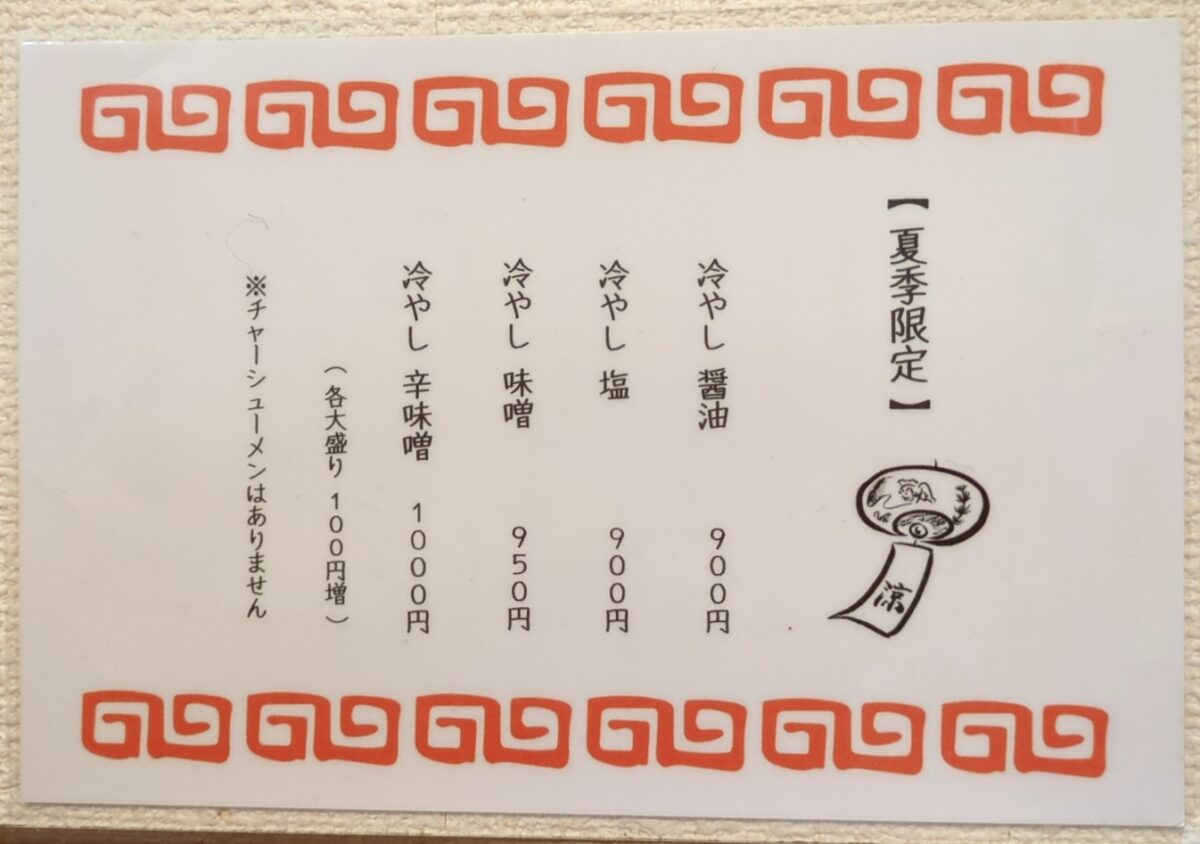 【夏季限定】
涼
冷やし 醤油 900円
冷やし 塩 900円
冷やし 味噌 950円
冷やし 辛味噌 1000円
（各大盛り 100円増）
※チャーシューメンはありません